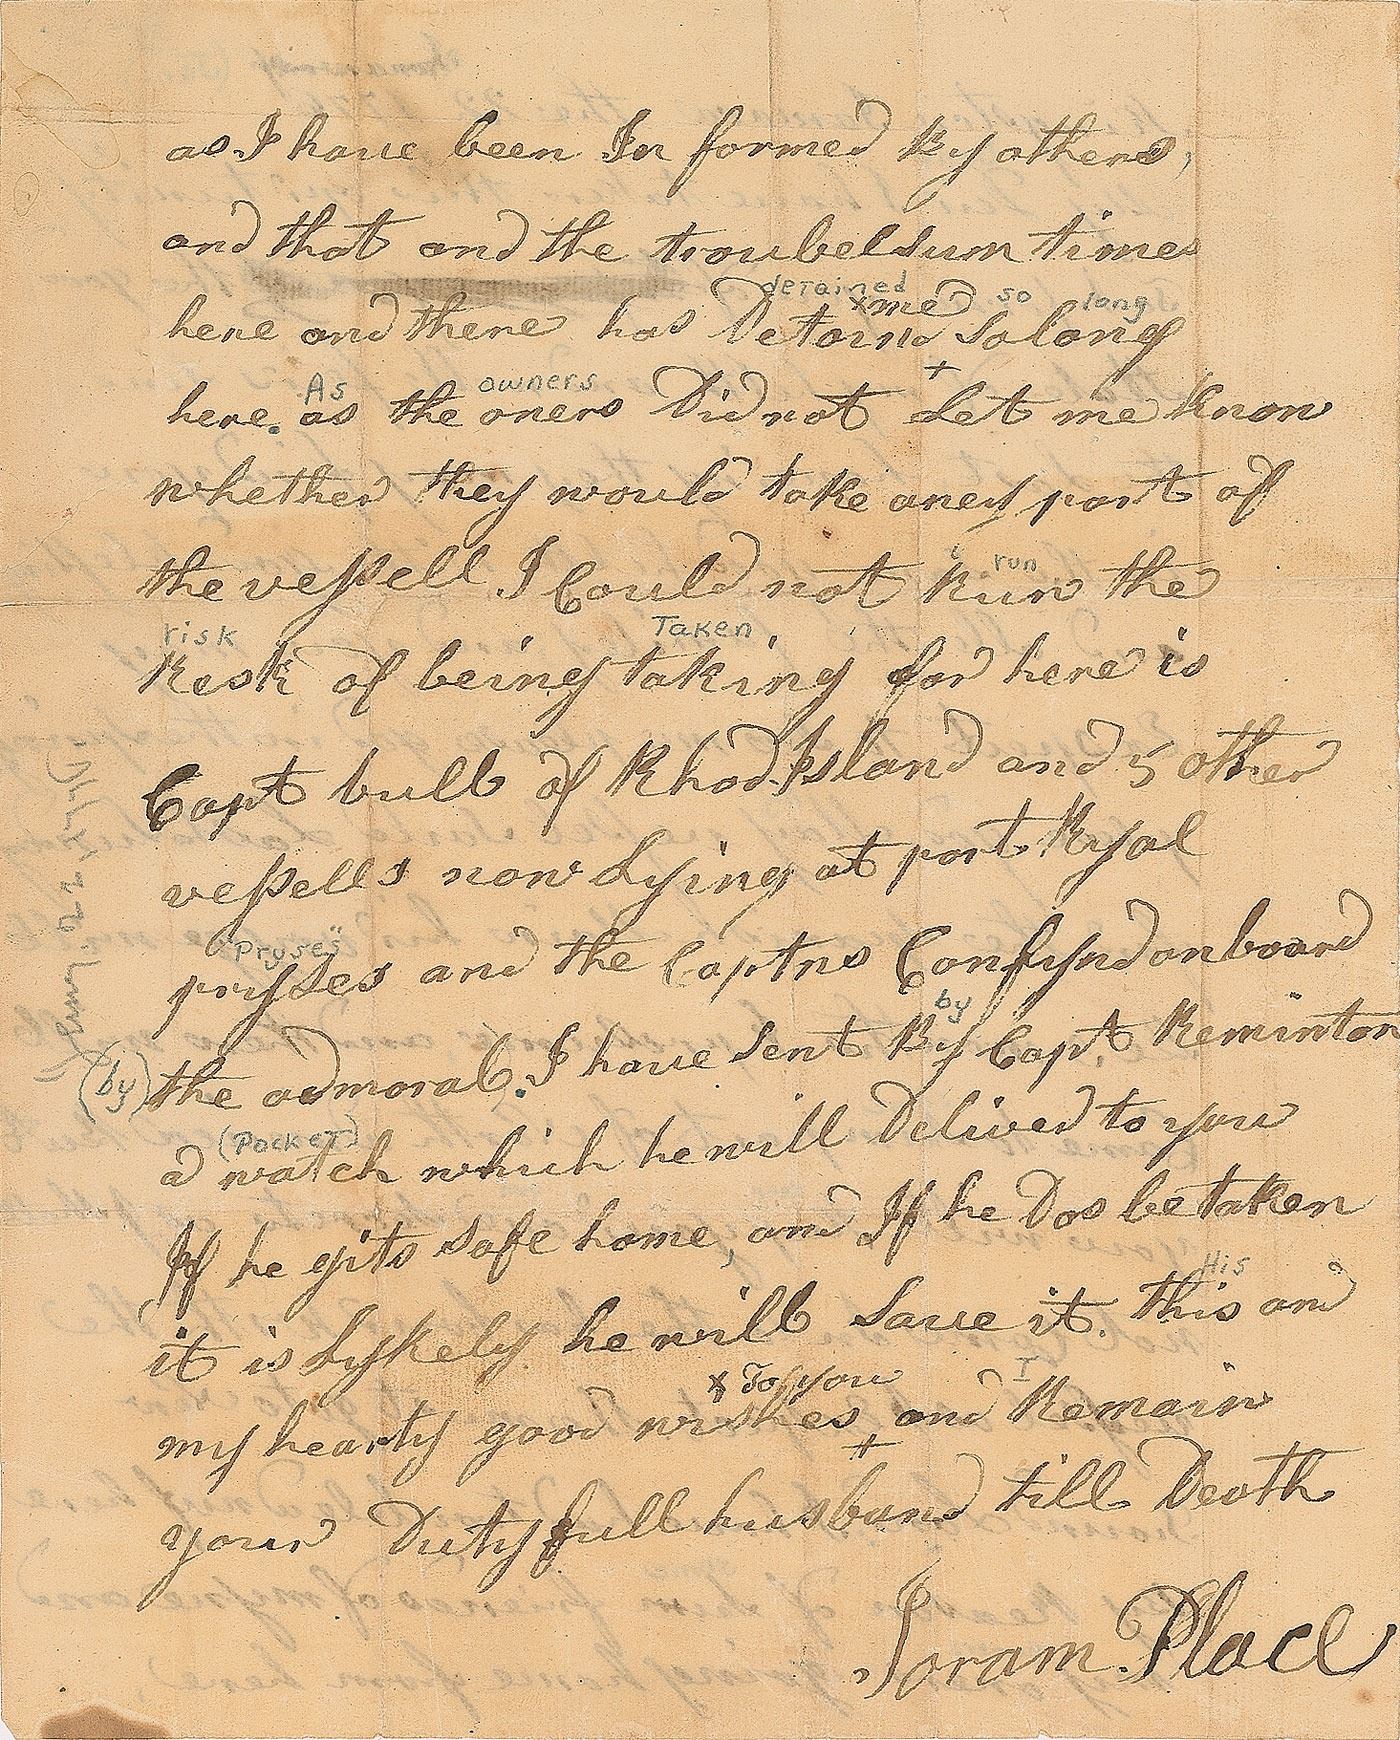 as I have been In formed By others,
and that and the troubelsum times
detained so long
here and there has Detaind me so long
As owners
here. as the oners Did not Let me know
whether they would take aney part of
run
the vessell I Could not Run the
risk Taken
Resk of being taking for here is
Capt bull of Rhod Island and 5 other
vessells now Lying at port Ryal
"Pryses"
pryses and the Captns Confynd onboard
by
(by) the admoral. I have sent By Capt. Reminton
(Pocket)
a watch which he will Deliver to you
If he gits safe home, and If he Dos be taken
His
it is Lykely he will save it. this and
x to you I
my hearty good wishes and Remain
your Dutyfull husband till Death
Joram Place